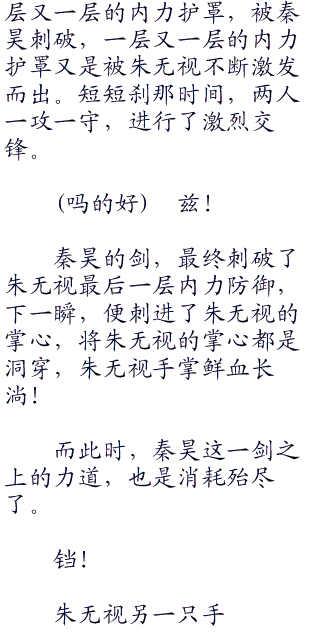 层又一层的内力护罩，被秦
昊刺破，一层又一层的内力
护罩又是被朱无视不断激发
而出。短短刹那时间，两人
一攻一守，进行了激烈交
锋。
（吗的好） 兹！
秦昊的剑，最终刺破了
朱无视最后一层内力防御，
下一瞬，便刺进了朱无视的
掌心，将朱无视的掌心都是
洞穿，朱无视手掌鲜血长
淌！
而此时，秦昊这一剑之
上的力道，也是消耗殆尽
了。
铛！
朱无视另一只手